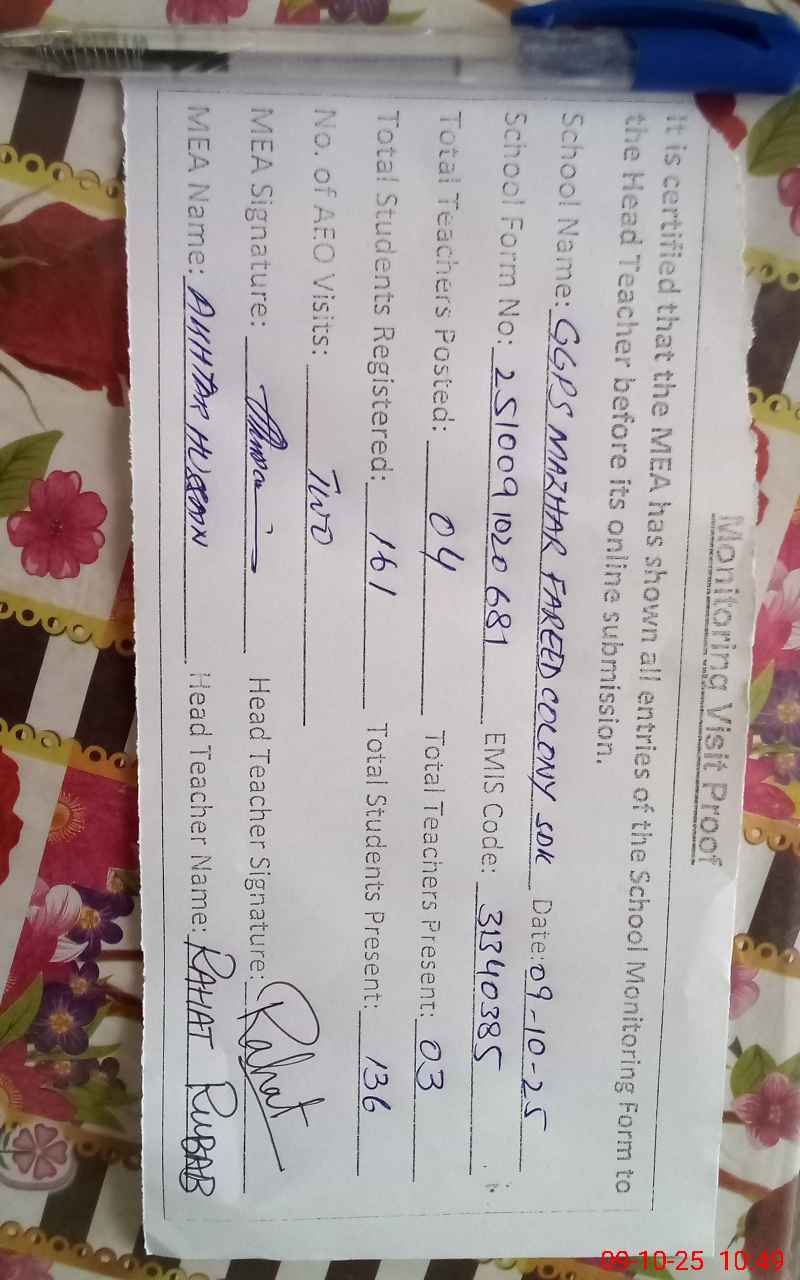 Monitoring Visit Proof
It is certified that the MEA has shown all entries of the School Monitoring Form to
the Head Teacher before its online submission.
School Name: GGPS MAZHAR FAREED COLONY SDK Date: 09-10-25
School Form No: 251009 1020 681 EMIS Code: 31340385
Total Teachers Posted: 04 Total Teachers Present: 03
Total Students Registered: 161 Total Students Present: 136
No. of AEO Visits: TWO
MEA Signature: Head Teacher Signature: Rahat
MEA Name: AKHTAR HUSSAIN Head Teacher Name: RAHAT RUBAB
09-10-25 10:49